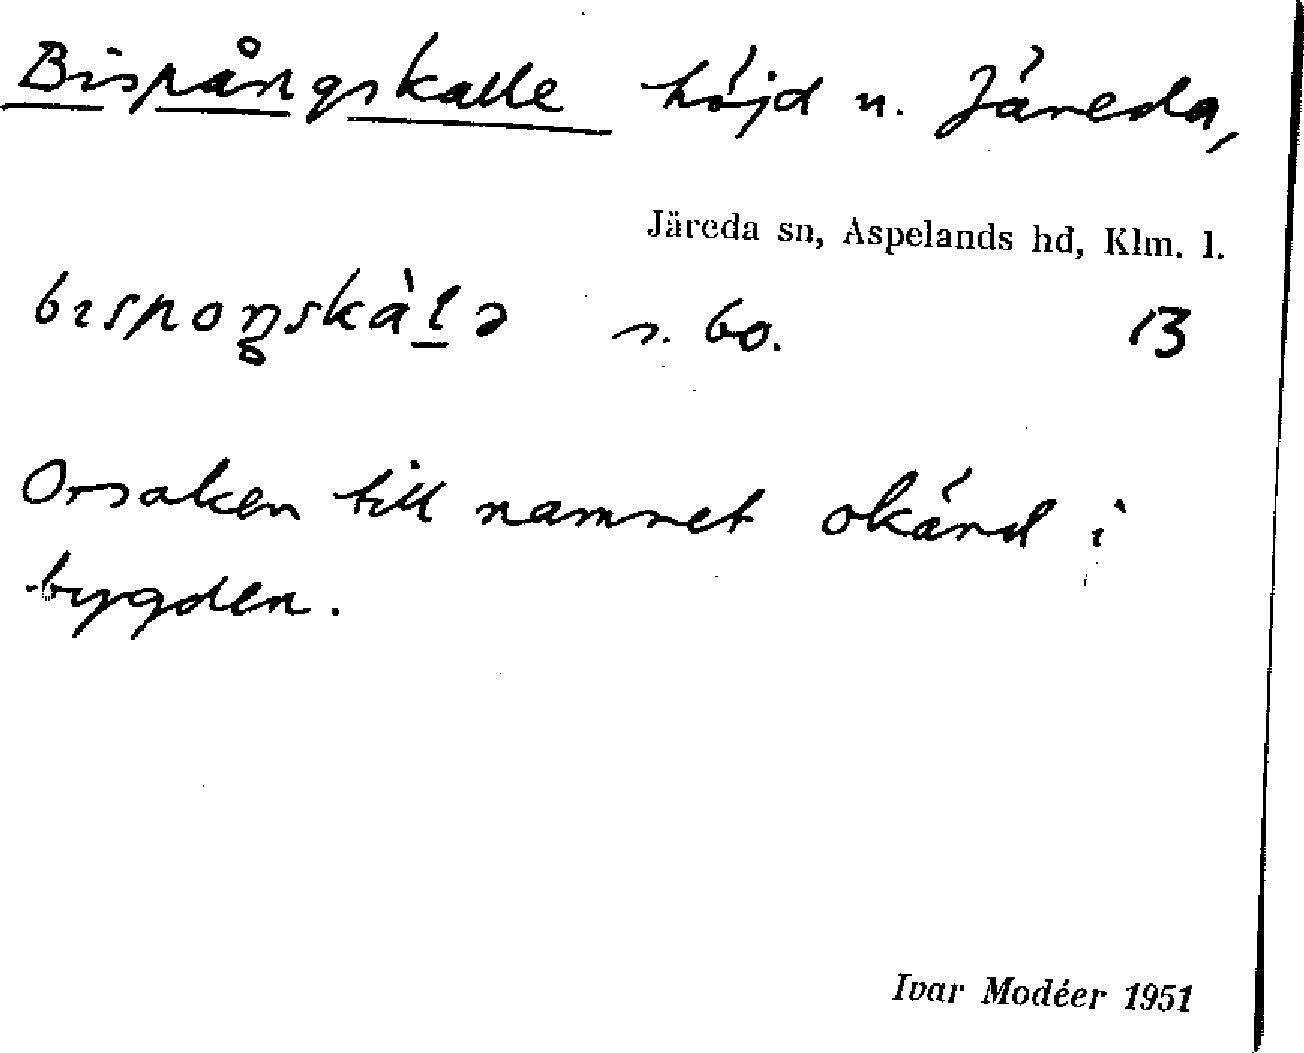 Bispångskalle höjd n. Järeda,
Järeda sn, Aspelands hd, Klm. l.
bıspoŋskàlə s. bo. 13
Orsaken till namnet okänd i
bygden.
Ivar Modéer 1951